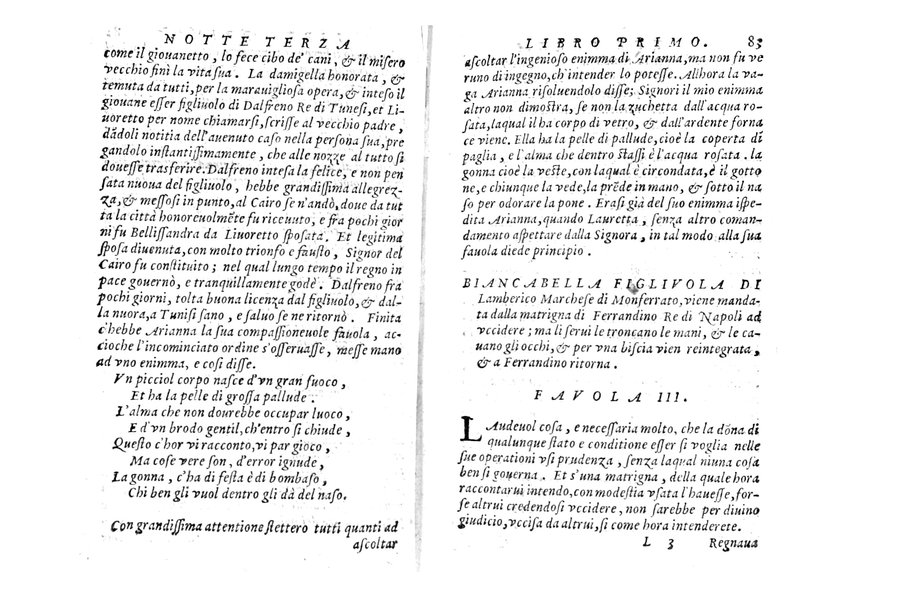 NOTTE TERZA
come il giouanetto, lo fece cibo de' cani, & il misero
vecchio finì la vita sua. La damigella honorata, &
temuta da tutti, per la marauigliosa opera, & inteso il
giouane esser figliuolo di Dalfreno Re di Tunesi, et Li
uoretto per nome chiamarsi, scrisse al vecchio padre,
dādoli notitia dell'auenuto caso nella persona sua, pre
gandolo instantissimamente, che alle nozze al tutto si
douesse trasferire. Dalfreno intesa la felice, e non pen
sata nuoua del figliuolo, hebbe grandissima allegrez-
za, & messosi in punto, al Cairo se n'andò, doue da tut
ta la città honoreuolmēte fu riceuuto, e fra pochi gior
ni fu Bellissandra da Liuoretto sposata. Et legitima
sposa diuenuta, con molto trionfo e fausto, Signor del
Cairo fu constituito; nel qual lungo tempo il regno in
pace gouernò, e tranquillamente godè. Dalfreno fra
pochi giorni, tolta buona licenza dal figliuolo, & dal-
la nuora, a Tunisi sano, e saluo se ne ritornò. Finita
c'hebbe Arianna la sua compassioneuole fauola, ac-
cioche l'incominciato ordine s'osseruasse, messe mano
ad vno enimma, e così disse.
Vn picciol corpo nasce d'vn gran fuoco,
Et ha la pelle di grossa pallude.
L'alma che non dourebbe occupar luoco,
E d'vn brodo gentil, ch'entro si chiude,
Questo c'hor vi racconto, vi par gioco,
Ma cose vere son, d'error ignude,
La gonna, c'ha di festa è di bombaso,
Chi ben gli vuol dentro gli dà del naso.
Con grandissima attentione stettero tutti quanti ad
ascoltar
LIBRO PRIMO. 83
ascoltar l'ingenioso enimma di Arianna, ma non fu ve
runo di ingegno, ch'intender lo potesse. Allhora la va-
ga Arianna risoluendolo disse; Signori il mio enimma
altro non dimostra, se non la zuchetta dall'acqua ro-
sata, laqual ha corpo di vetro, & dall'ardente forna
ce viene. Ella ha la pelle di pallude, cioè la coperta di
paglia, e l'alma che dentro stassi è l'acqua rosata. la
gonna cioè la veste, con laqual è circondata, è il gotto
ne, e chiunque la vede, la prēde in mano, & sotto il na
so per odorare la pone. Erasi già del suo enimma ispe-
dita Arianna, quando Lauretta, senza altro coman-
damento aspettare dalla Signora, in tal modo alla sua
fauola diede principio.
BIANCABELLA FIGLIVOLA DI
Lamberico Marchese di Monferrato, viene manda-
ta dalla matrigna di Ferrandino Re di Napoli ad
vccidere; ma li serui le troncano le mani, & le ca-
uano gli occhi, & per vna biscia vien reintegrata,
& a Ferrandino ritorna.
FAVOLA III.
LAudeuol cosa, e necessaria molto, che la dōna di
qualunque stato e conditione esser si voglia nelle
sue operationi vsi prudenza, senza laqual niuna cosa
ben si gouerna. Et s'una matrigna, della quale hora
raccontarui intendo, con modestia vsata l'hauesse, for-
se altrui credendosi vccidere, non sarebbe per diuino
giudicio, vccisa da altrui, si come hora intenderete.
L 3 Regnaua